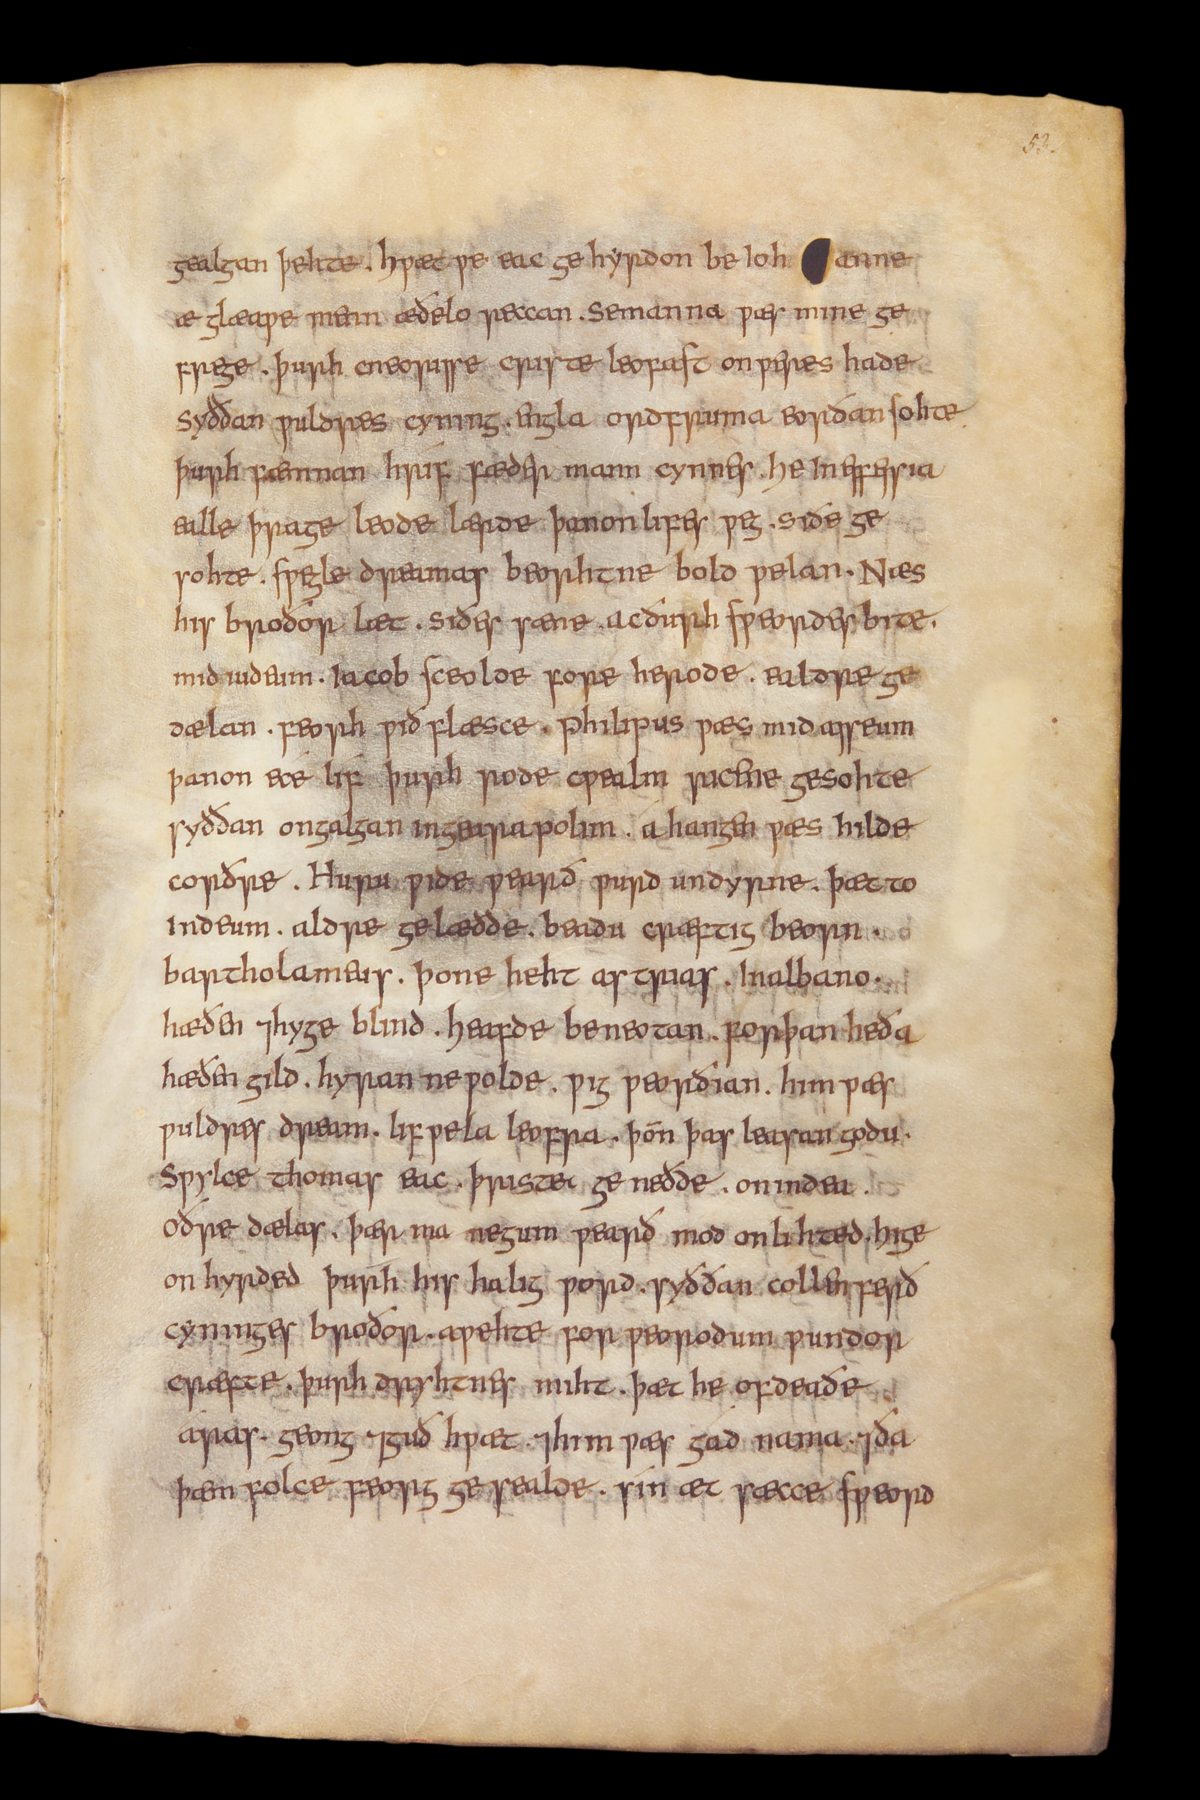 53.
gealgan þehte. hƿæt ƿe eac ge hyrdon be ioh anne
æ glæaƿe menn æðelo reccan. se manna ƿæs mine ge
frege. þurh cneorisse criste leofast on ƿeres hade
syððan ƿuldres cyning. engla ordfruma eorðan sohte
þurh fæmnan hrif fæder mann cynnes. he in effessia
ealle þrage leode lærde þanon lifes ƿeg. siðe ge
sohte. sƿegle dreamas beorhtne bold ƿelan. Næs
his broðor læt. siðes sæne. ac ðurh sƿeordes bite.
mid iudeum. Iacob sceolde fore herode. ealdre ge
dælan. feorh ƿið flæsce. philipus ƿæs mid asseum
þanon ece lif þurh rode cƿealm ricene gesohte
syððan on galgan in gearapolim. ahangen ƿæs hilde
corðre. Huru ƿide ƿearð ƿurd undyrne. þæt to
Indeum. aldre gelædde. beadu cræftig beorn.
bartholameus. þone heht astrias. In albano.
hæðen ⁊hyge blind. heafde beneotan. forþan he ða
hæðen gild. hyran ne ƿolde. ƿig ƿeorðian. him ƿæs
ƿuldres dream. lif ƿela leofra. þoñ þas leasan godu.
Sƿylce thomas eac. þriste ge neðde. on indea.
oðre dælas. þær ma negum ƿearð mod onlihted. hige
onhyrded þurh his halig ƿord. syððan collenferð
cyninges broðor. aƿehte for ƿeorodum ƿundor
cræfte. þurh dryhtnes miht. þæt he of deaðe
aras. geong ⁊guð hƿæt. ⁊him ƿæs gád nama. ⁊ða
þæm folce feorg gesealde. sin æt sæcce sƿeord